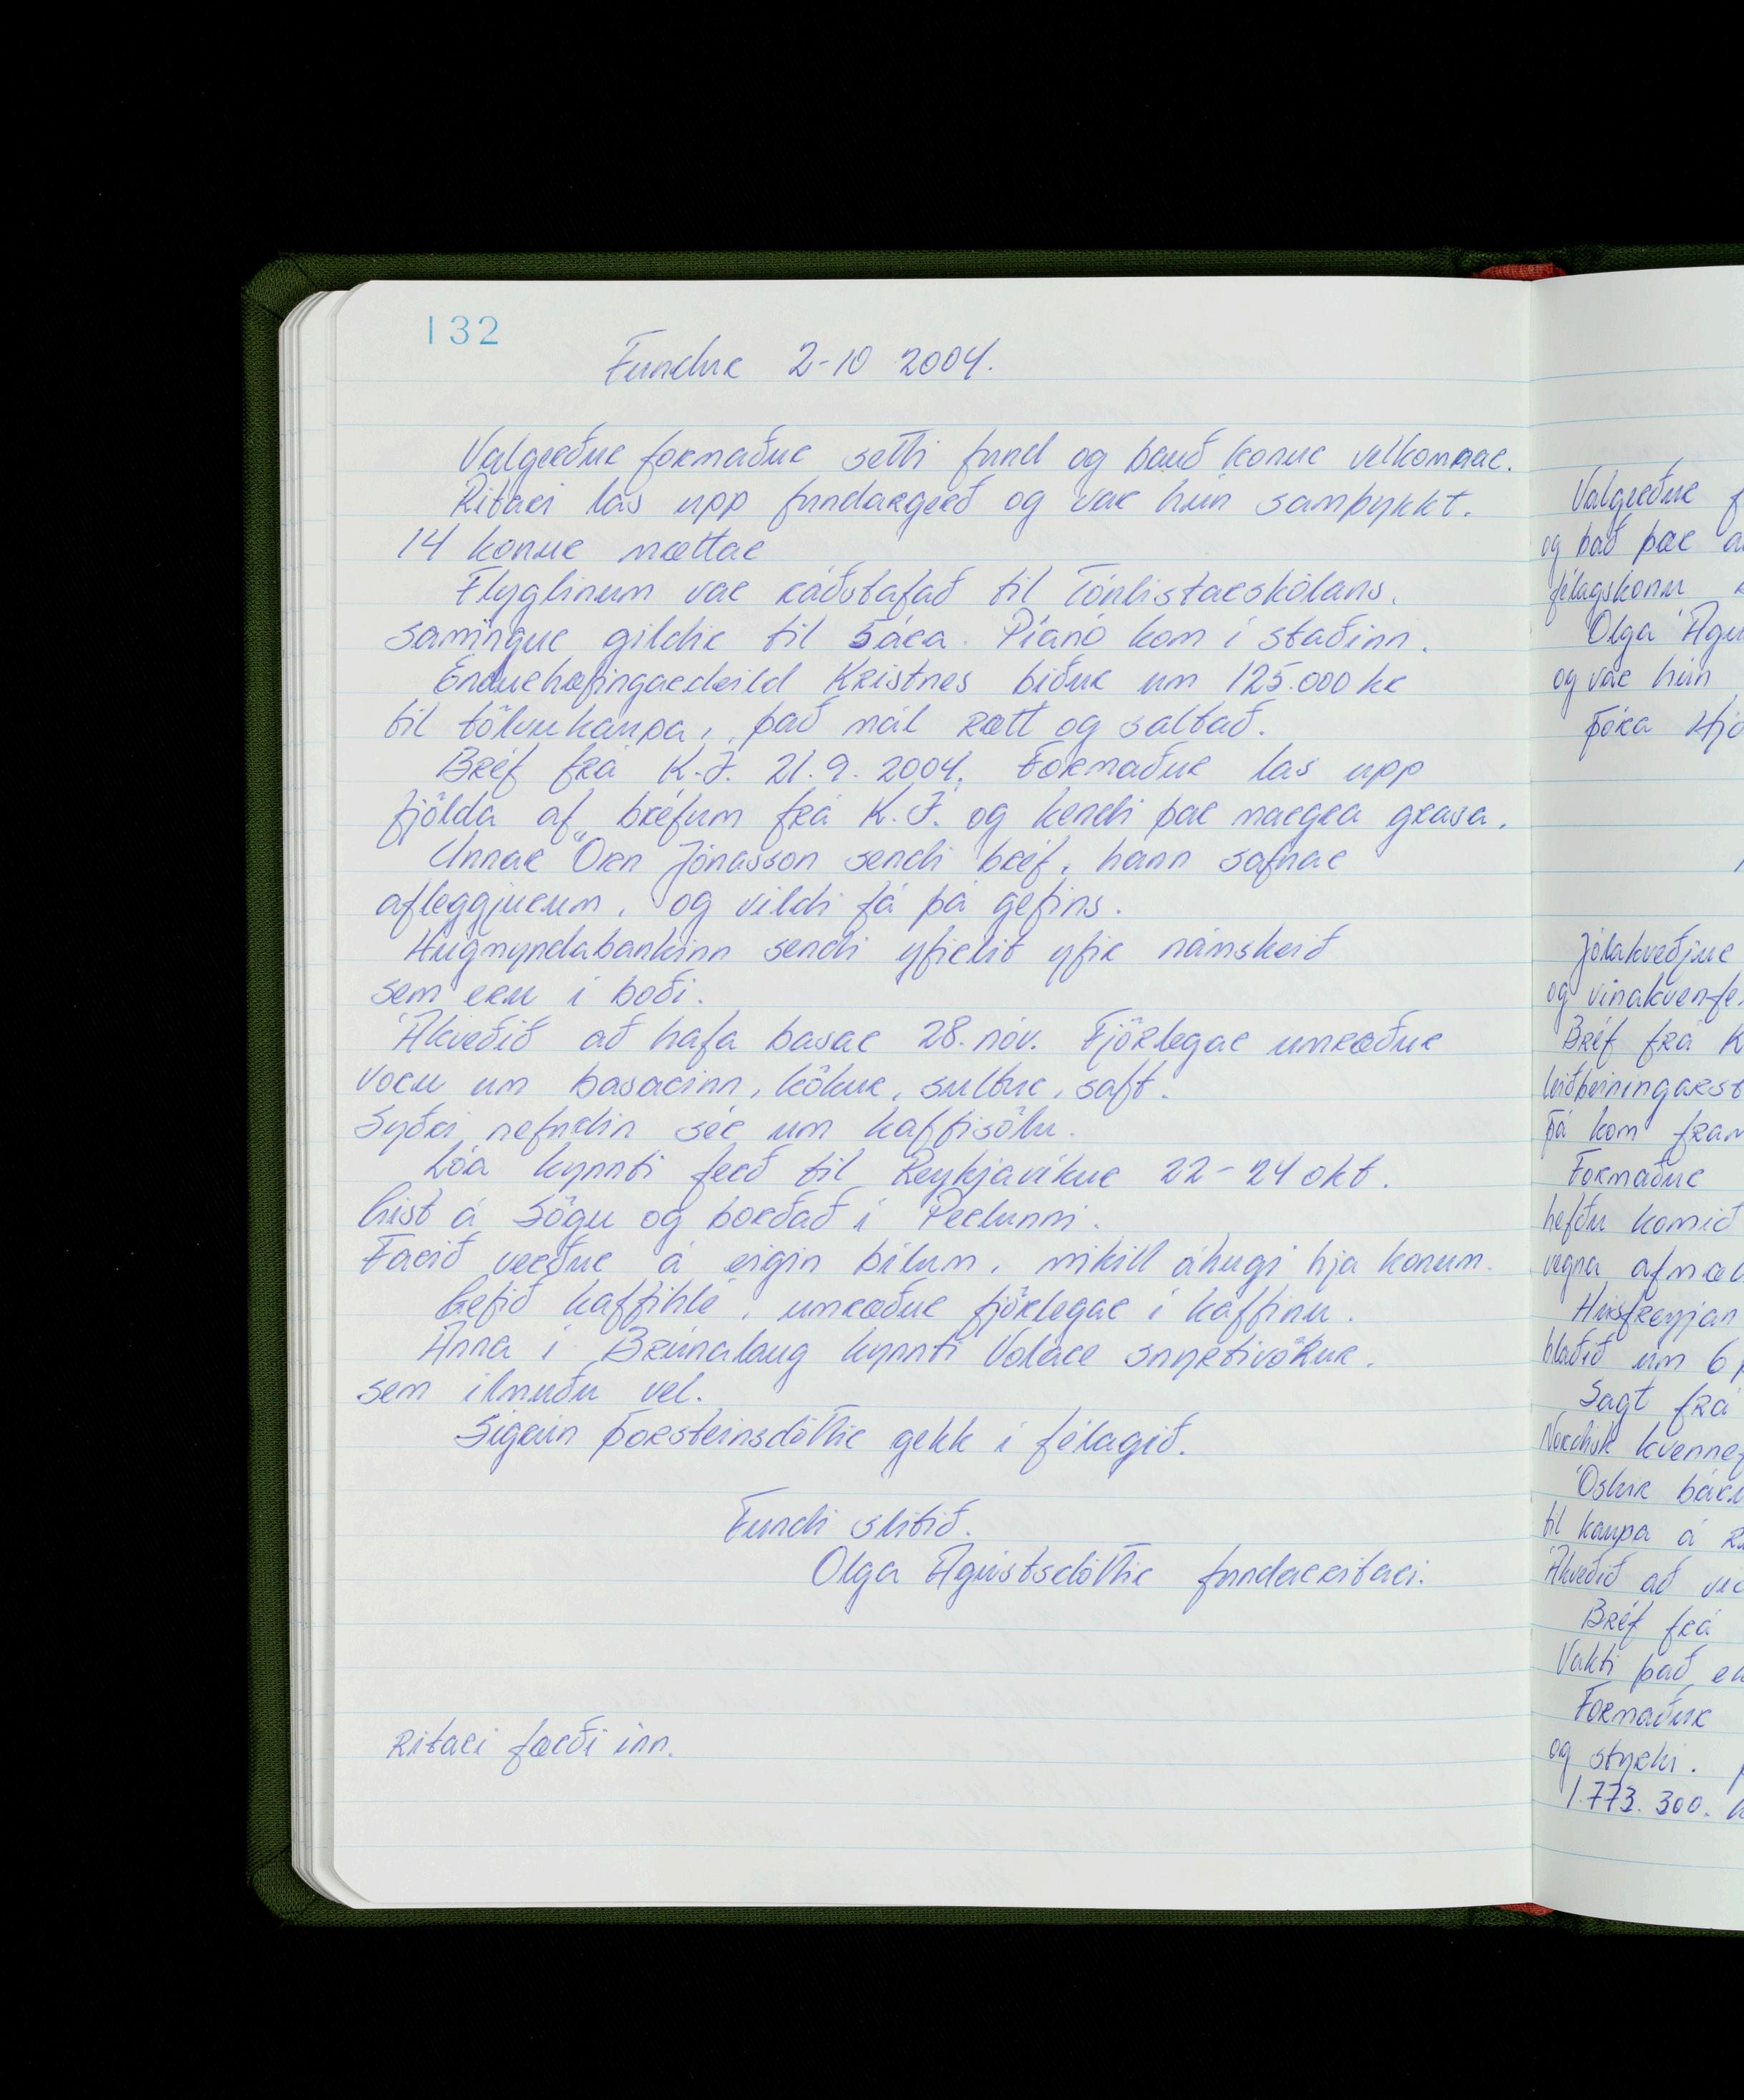 132
Fundur 2-10 2004.
Valgerður formaður setti fund og bauð konur velkomnar.
Ritari las upp fundargerð og var hún samþykkt.
14 konur mættar
Flyglinum var ráðstafað til Tónlistarskólans.
samingur gildir til 5 ára. Píanó kom í staðinn.
Endurhæfingardeild Kristnes biður um 125.000 kr
til tölvukaupa, það mál rætt og saltað.
Bréf frá K.Í. 21.9.2004. Formaður las upp
fjölda af bréfum frá K.Í. og kendi þar margra grasa.
Unnar Örn Jónasson sendi bréf, hann safnar
afleggjurum, og vildi fá þá gefins.
Hugmyndabankinn sendi yfirlit yfir námskeið
sem eru í boði.
Ákveðið að hafa basar 28. nóv. Fjörlegar umræður
voru um basarinn, kökur, sultur, saft.
Syðri nefndin sér um kaffisölu.
Lóa kynnti ferð til Reykjavíkur 22-24 okt.
Gist á Sögu og borðað í Perlunni.
Farið verður á eigin bílum, mikill áhugi hja konum.
Gefið kaffihlé, umræður fjörlegar í kaffinu.
Anna í Brúnalaug kynnti Volare snyrtivörur.
sem ilmuðu vel.
Sigrún Þorsteinsdóttir gekk í félagið.
Fundi slitið.
Olga Ágústsdóttir fundarritari.
Ritari færði inn.
Valgerður f
og bað þær a
félagskonu
Olga Ágú
og var hún
Þóra Hjó
Jólakveðjur
og vinakvenfé
Bréf frá K
leiðbeiningarst
Þá kom fram
Formaður
hefðu komið
vegna afmæl
Húsfreyjan
blaðið um 6
Sagt frá
Nordisk kvennef
Óskir báru
til kaupa á R
Ákveðið að ve
Bréf frá
Vakti það
Formaður
og styrki.
1.773.300.